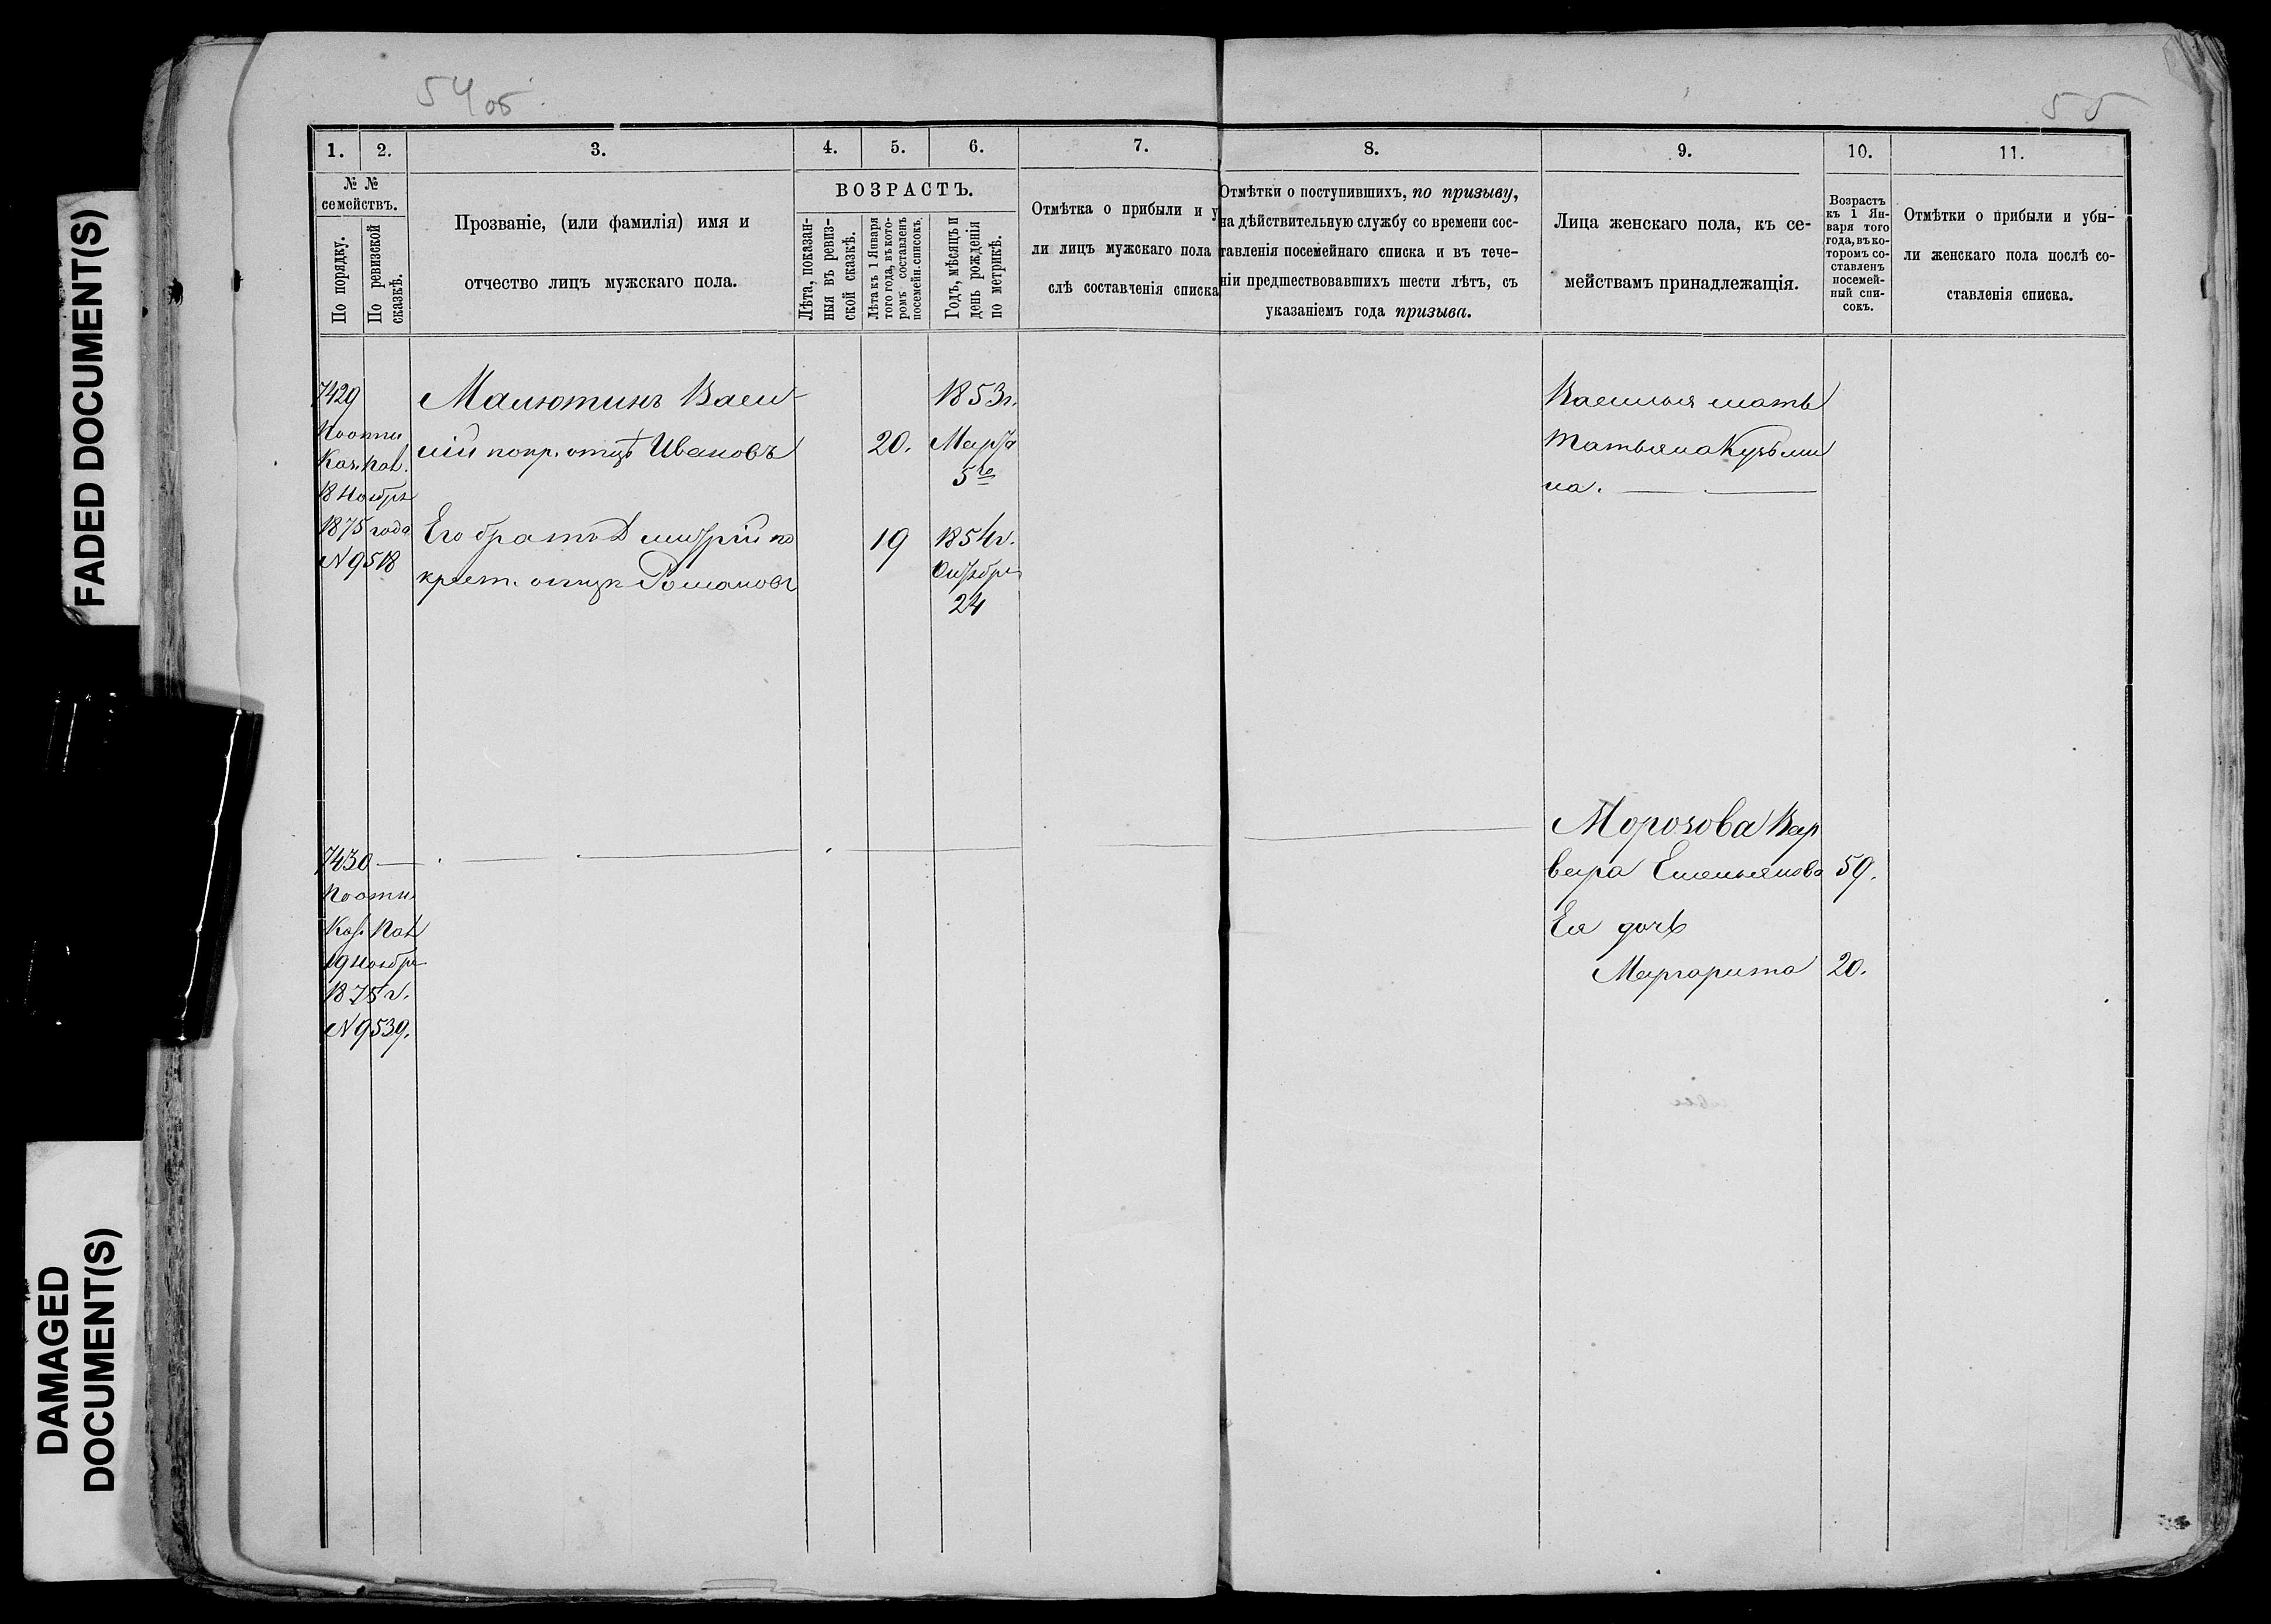 54об.
55
1. 2. 3. 4. 5. 6. 7. 8. 9. 10. 11.
№ №
семействъ.
По порядку.
По ревизской
сказкѣ.
Прозваніе, (или фамилія) имя и
отчество лицъ мужскаго пола.
ВОЗРАСТЪ.
Лѣта, показан-
ныя въ ревиз-
ской сказкѣ.
Лѣта къ 1 Января
того года, въ кото-
ромъ составленъ
посемейн. списокъ.
Годъ, мѣсяцъ и
день рожденія
по метрикѣ.
Отмѣтка о прибыли и у
ли лицъ мужскаго пола
слѣ составленія списка
Отмѣтки о поступившихъ, по призыву,
на дѣйствительную службу со времени сос-
тавленія посемейнаго списка и въ тече-
ніи предшествовавшихъ шести лѣтъ, съ
указаніемъ года призыва.
Лица женскаго пола, къ се-
мействамъ принадлежащія.
Возрастъ
къ 1 Ян-
варя того
года, въ ко-
торомъ со-
ставленъ
посемей-
ный спи-
сокъ.
Отмѣтки о прибыли и убы-
ли женскаго пола послѣ со-
ставленія списка.
7429
По отн
Каз. Пал.
18 Ноября
1875 года
N 9518
Малютинъ Васи-
лій по кр. отцѣ Ивановъ
20.
1853 г.
Марта
5го
Его братъ Дмитрій по
крест. отцѣ Романовъ
19
1854 г.
Октября
24
Василья мать
Татьяна Кузьми
на.
7430
По отн
Каз. Пал
19 Ноября
1875 г.
N 9539.
Морозова Вар
вара Емельянова 59.
Ея дочь
Маргарита 20.
FADED DOCUMENT(S)
DAMAGED
DOCUMENT(S)